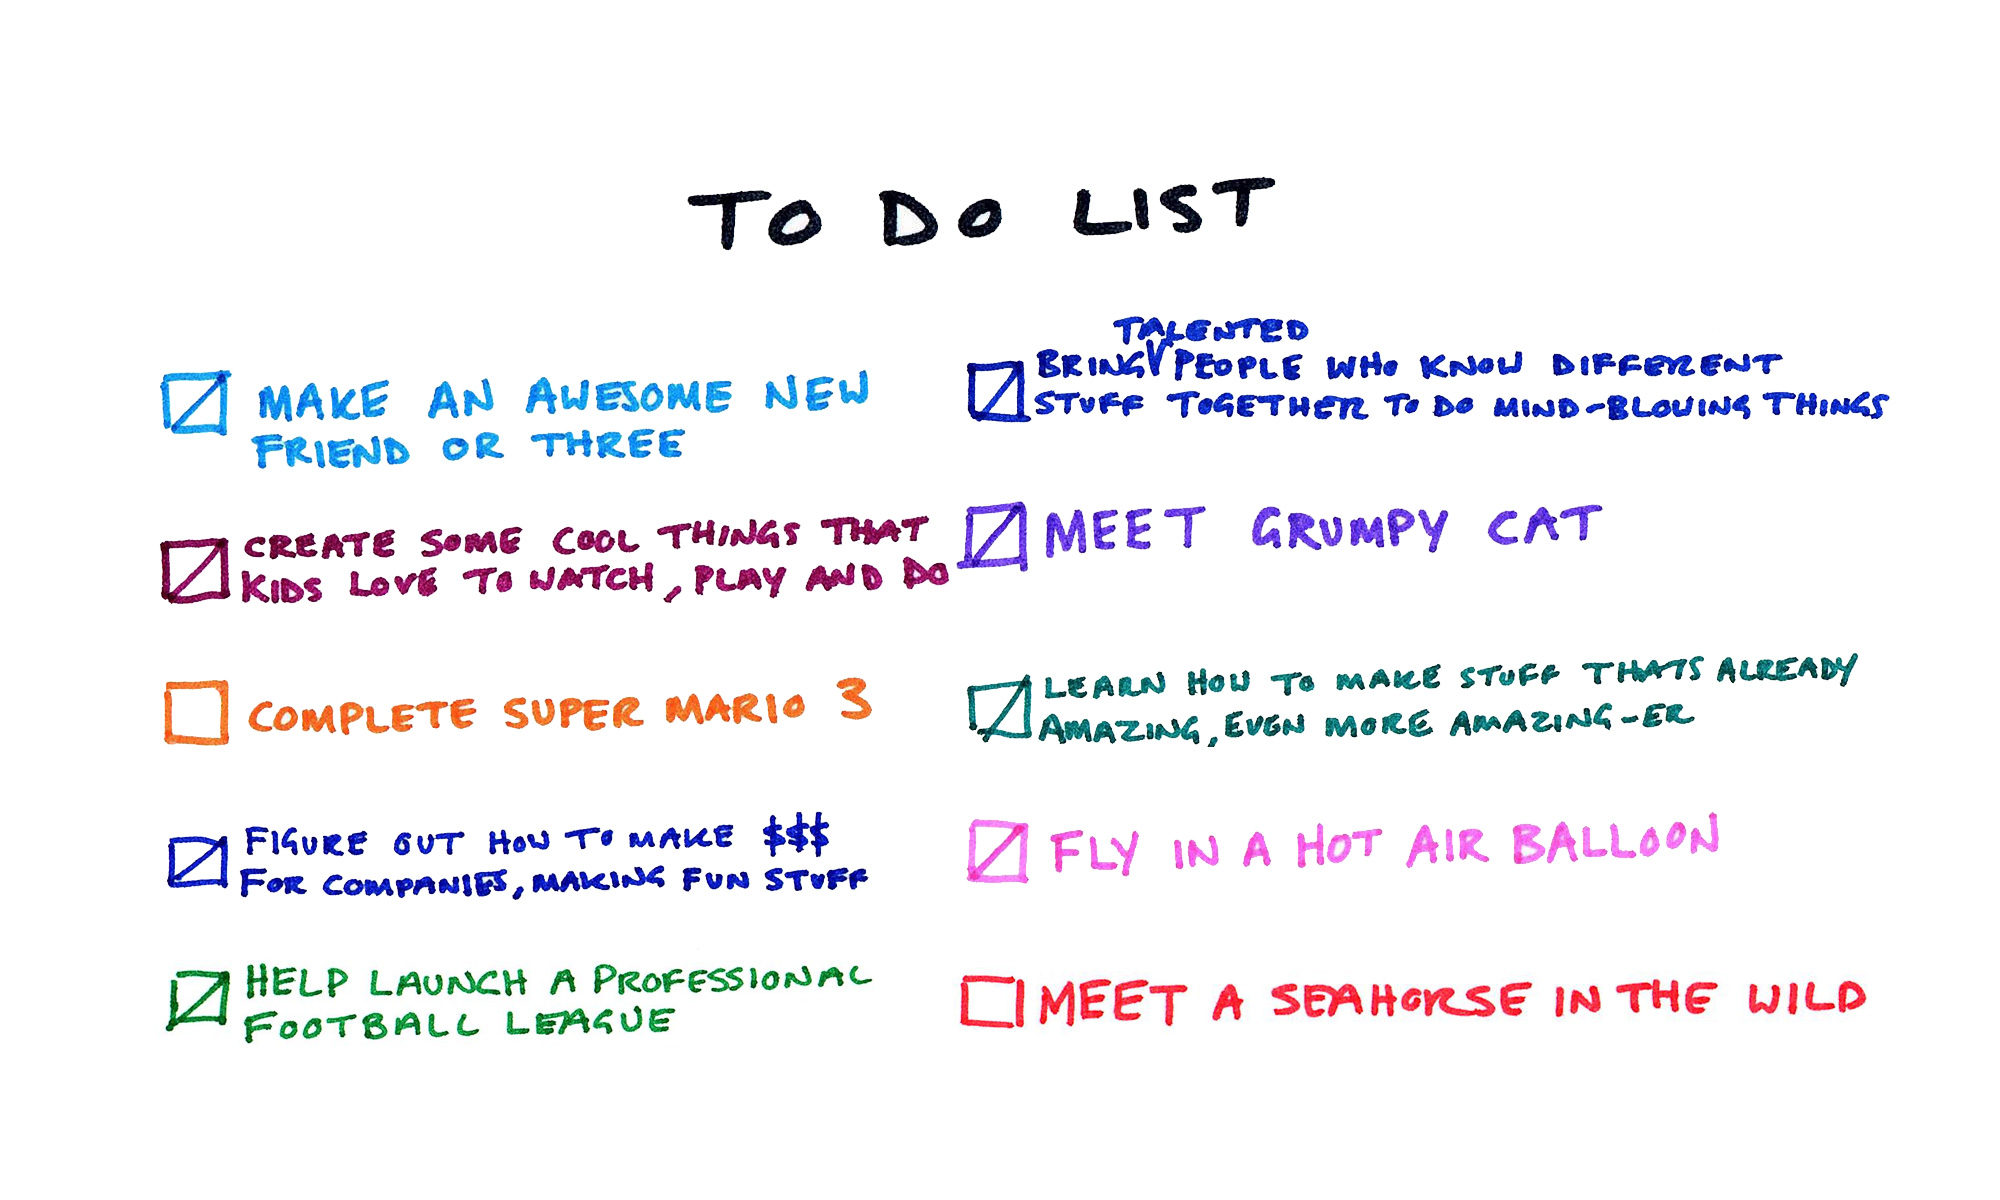 TO DO LIST
MAKE AN AWESOME NEW
FRIEND OR THREE
CREATE SOME COOL THINGS THAT
KIDS LOVE TO WATCH, PLAY AND DO
COMPLETE SUPER MARIO 3
FIGURE OUT HOW TO MAKE $$$
FOR COMPANIES, MAKING FUN STUFF
HELP LAUNCH A PROFESSIONAL
FOOTBALL LEAGUE
TALENTED
BRING PEOPLE WHO KNOW DIFFERENT
STUFF TOGETHER TO DO MIND-BLOWING THINGS
MEET GRUMPY CAT
LEARN HOW TO MAKE STUFF THATS ALREADY
AMAZING, EVEN MORE AMAZING-ER
FLY IN A HOT AIR BALLOON
MEET A SEAHORSE IN THE WILD